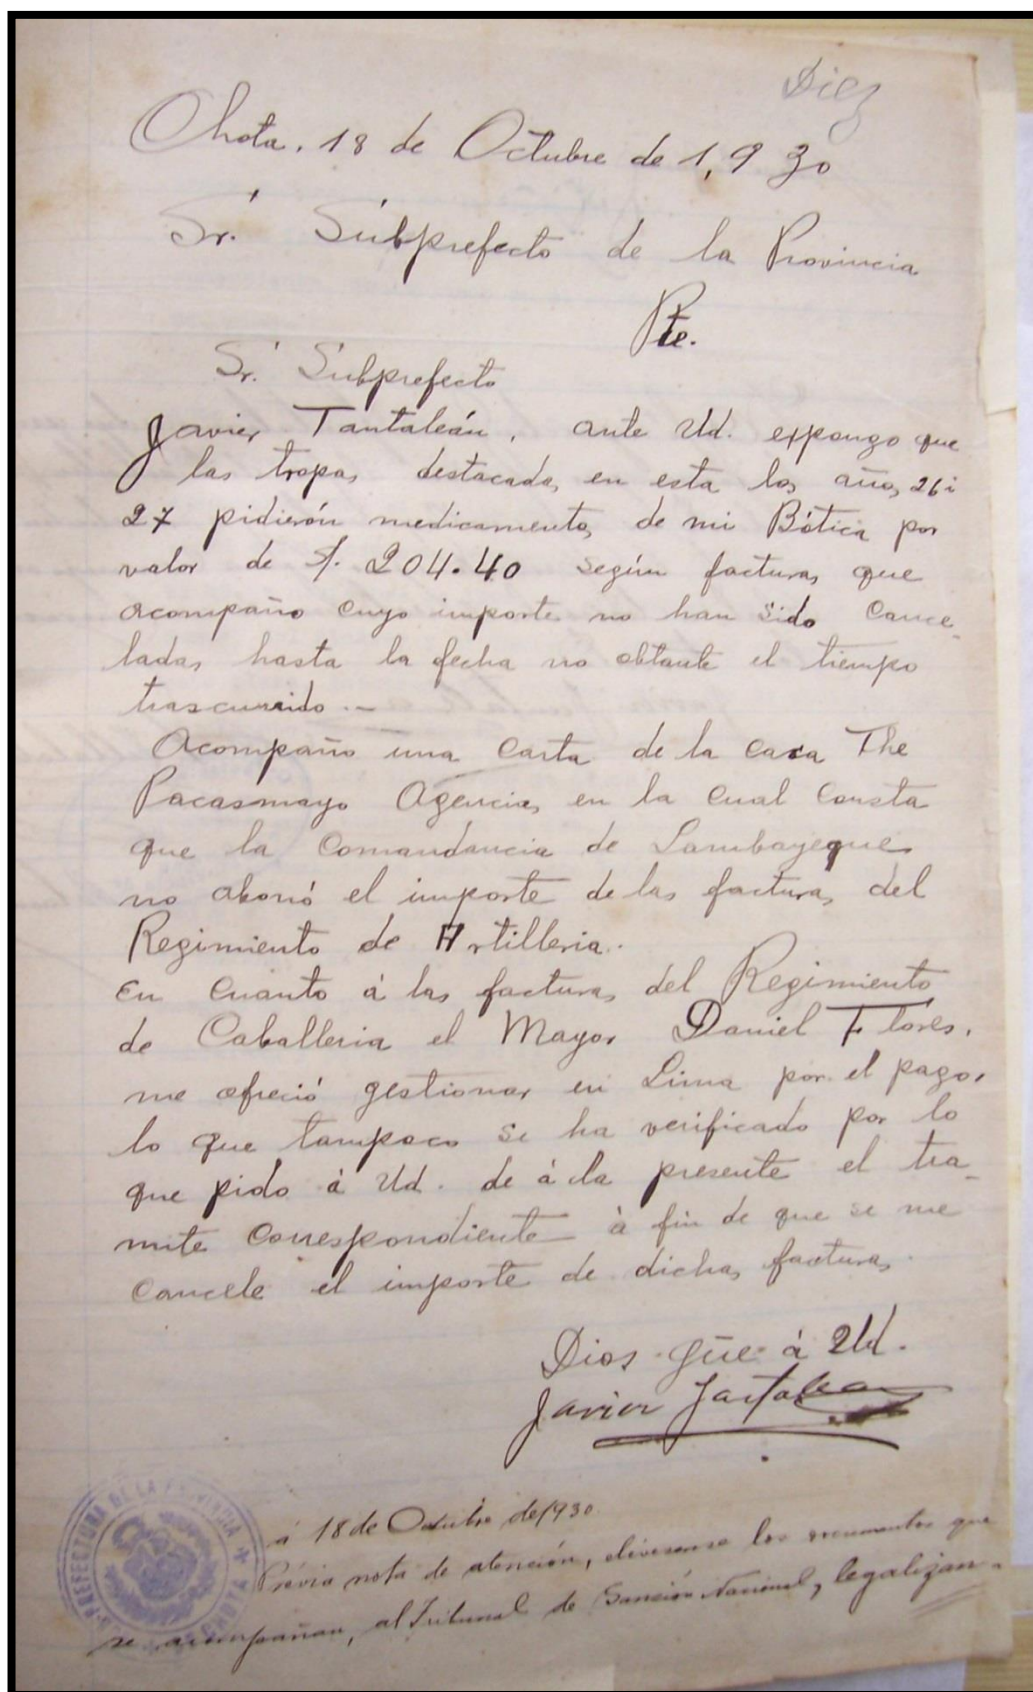 Diez
Chota, 18 de Octubre de 1,930
Sr. Subprefecto de la Provincia
Pte.
Sr. Subprefecto
Javier Tantaleán, ante Ud. expongo que
las tropas destacadas en esta los años 26 i
27 pidierón medicamentos de mi Bótica por
valor de S/. 204.40 según facturas que
acompaño cuyo importe no han sido cance-
ladas hasta la fecha no obtante el tiempo
trascurrido.-
Acompaño una carta de la casa The
Pacasmayo Agencias en la cual consta
que la Comandancia de Lambayeque
no abonó el importe de las facturas del
Regimiento de Artilleria.
En cuanto á las facturas del Regimiento
de Caballeria el Mayor Daniel Flores,
me ofreció gestionar en Lima por el pago,
lo que tampoco se ha verificado por lo
que pido á Ud. de á la presente el tra-
mite correspondiente á fin de que se me
cancele el importe de dichas facturas.
Dios güe á Ud.
Javier Tantaleán
PREFECTURA DE LA PROVINCIA
á 18 de Octubre de 1930.
Prévia nota de atención, elévense los documentos que
se acompañan, al Tribunal de Sanción Nacional, legalizan-